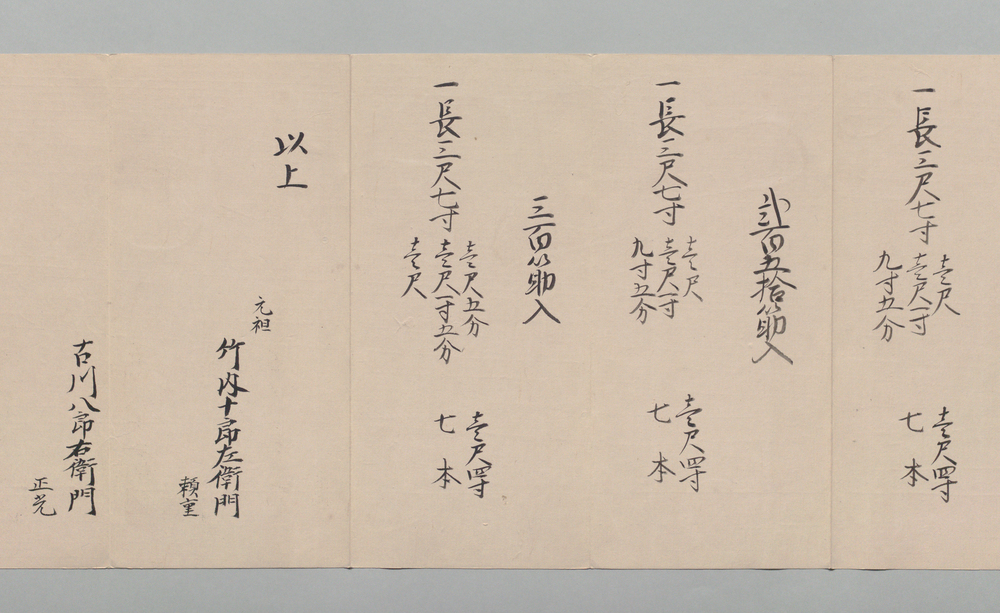 一長三尺七寸
壱尺
壱尺一寸
九寸五分
壱尺四寸
七本
弐百五拾筋入
一長三尺七寸
壱尺
壱尺一寸
九寸五分
壱尺四寸
七本
三百筋入
一長三尺七寸
壱尺五分
壱尺一寸五分
壱尺
壱尺四寸
七本
以上
元祖
竹内十郎左衛門
頼重
古川八郎右衛門
正光